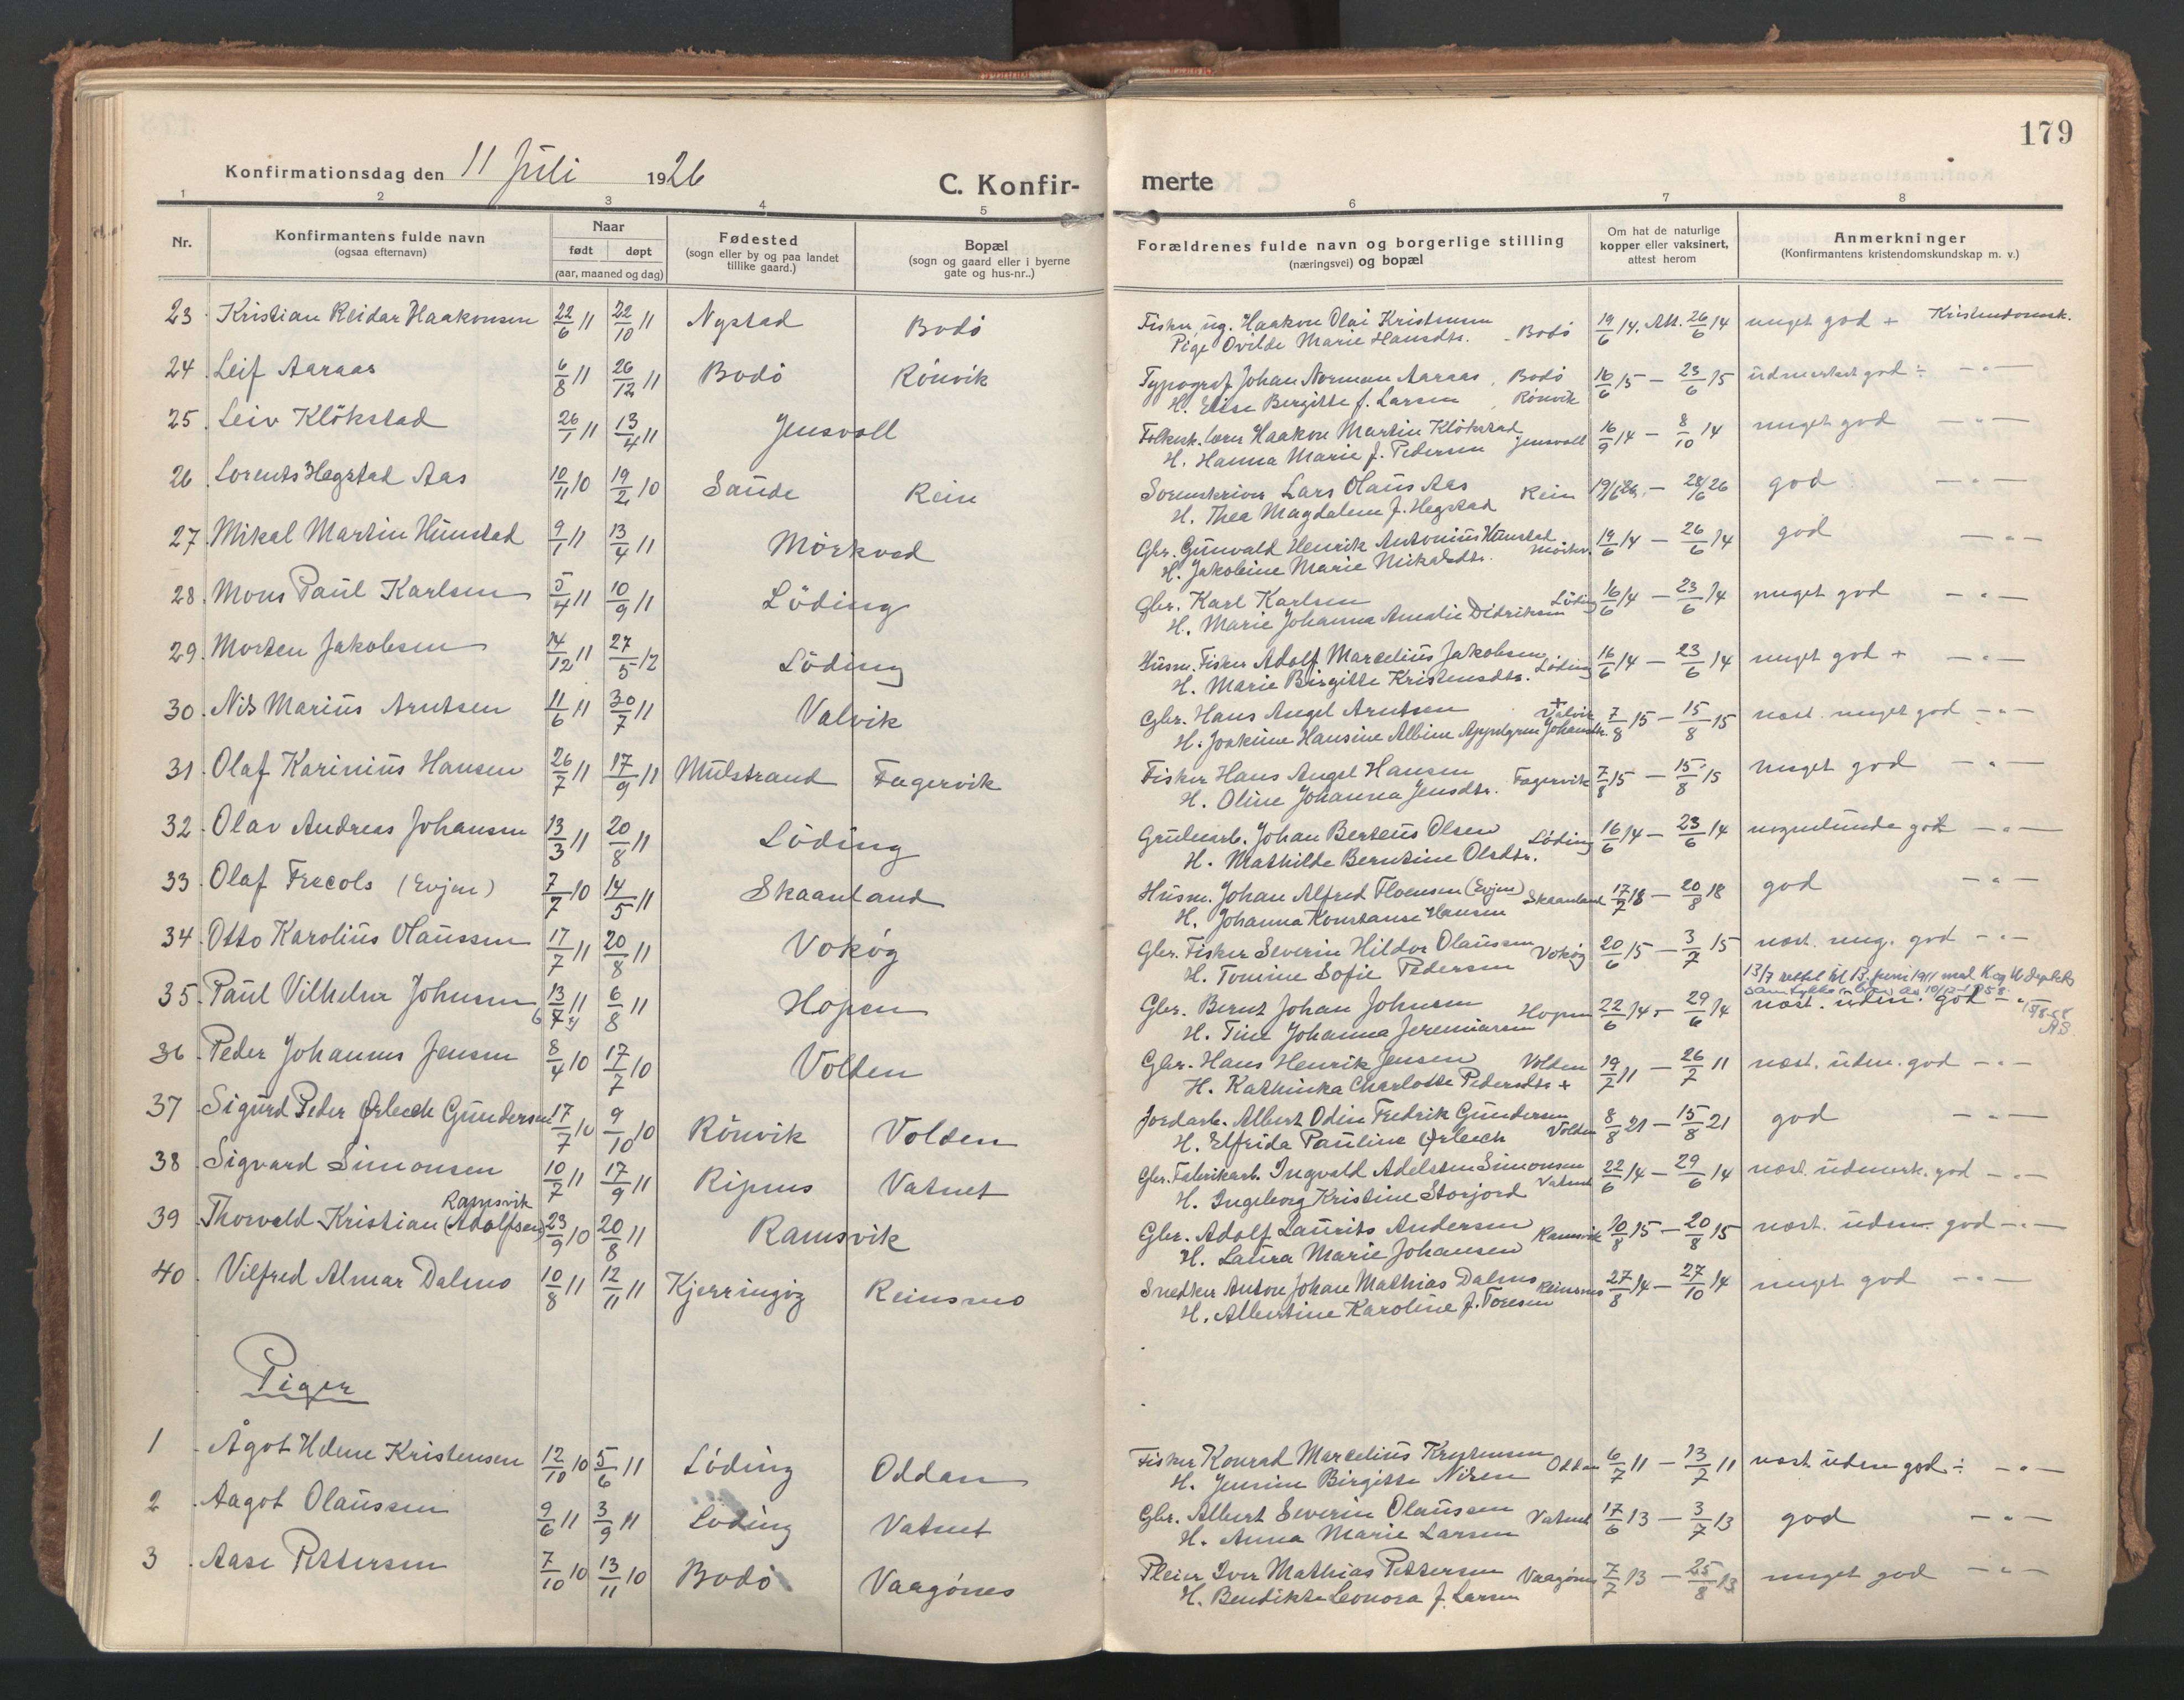 179
Konfirmationsdag den 11 Juli 1926
C. Konfirmerte
1 2 3 4 5 6 7 8
Nr.
Konfirmantens fulde navn
(ogsaa efternavn)
Naar
født døpt
(aar, maaned og dag)
Fødested
(sogn eller by og paa landet
tillike gaard.)
Bopæl
(sogn og gaard eller i byerne
gate og hus-nr..)
Forældrenes fulde navn og borgerlige stilling
(næringsvei) og bopæl
Om hat de naturlige
kopper eller vaksinert,
attest herom
Anmerkninger
(Konfirmantens kristendomskundskap m. v.)
23 Kristian Reidar Haakonsen 22/6 11 22/10 11 Nystad Bodö Fisker ug. Haakon Olai Kristensen 19/6 14. Att. 26/6 14 meget god + Kristendomsk.
Pige Ovilde Marie Hansdtr. Bodö
24 Leif Aaraas 6/8 11 26/12 11 Bodö Rönvik Typograf Johan Norman Aaraas, Bodö 16/6 15 — 23/6 15 udmerket god ÷ — " —
H. Elise Bergitte f. Larsen, Rönvik
25 Leiv Klökstad 26/1 11 13/4 11 Jensvoll Folkesk. lærer Haakon Martin Klökstad 16/9 14 — 8/10 14 meget god — " —
H. Hanna Marie f. Pedersen Jensvoll
26 Lorents Hegstad Aas 10/11 10 19/2 10 Sande Rein Sorenskriver Lars Olaus Aas Rein 19/6 26. — 28/6 26 god — " —
H. Thea Magdalena f. Hegstad
27 Mikal Martin Hunstad 9/1 11 13/4 11 Mörkved Gbr. Gunvald Henrik Antonius Hunstad 19/6 14 — 26/6 14 god — " —
H. Jakobine Marie Mikalsdtr. Mörkv.
28 Mons Paul Karlsen 5/4 11 10/9 11 Löding Gbr. Karl Karlsen Löding 16/6 14 — 23/6 14 meget god — " —
H. Marie Johanna Amalie Didriksen
29 Morten Jakobsen 14/12 11 27/5 12 Löding Husm. Fisker Adolf Marcelius Jakobsen 16/6 14 — 23/6 14 meget god + — " —
H. Marie Birgitte Kristensdtr. Löding
30 Nils Marius Arntsen 11/6 11 30/7 11 Valvik Gbr. Hans Angel Arntsen + Valvik 7/8 15 — 15/8 15 næst. meget god — " —
H. Joakime Hansine Albine Appelgren Johansdtr.
31 Olaf Karinius Hansen 26/7 11 17/9 11 Mulstrand Fagervik Fisker Hans Angel Hansen 7/8 15 — 15/8 15 meget god — " —
H. Oline Johanna Jensdtr. Fagervik
32 Olav Andreas Johansen 13/3 11 20/8 11 Löding Grubearb. Johan Berteus Olsen Löding 16/6 14 — 23/6 14 nogenlunde god — " —
H. Mathilde Berntine Olsdtr.
33 Olaf Frecols (Evjen) 7/7 10 14/5 11 Skaanland Husm. Johan Alfred Floensen (Evjen) Skaanland 17/7 18 — 20/8 18 god — " —
H. Johanna Konstanse Hansen
34 Otto Karolius Olaussen 17/7 11 20/8 11 Vokøy Gbr. Fisker Severin Hildor Olaussen Vokøy 20/6 15 — 3/7 15 næst. meg. god — " —
H. Tomine Sofie Pedersen
35 Paul Vilhelm Johnsen 13/7 11 6/8 11 Hopen Gbr. Bernt Johan Johnsen Hopen 22/6 14 — 29/6 14 næst. udm. god — " —
13/7 rettet til 13. juni 1911 med K. og U. deptets
H. Tine Johanna Jeremiassen
36 Peder Johannes Jensen 8/4 10 17/7 10 Volden Gbr. Hans Henrik Jensen Volden 19/7 11 — 26/7 11 næst. udm. god — " —
H. Kathinka Charlotte Pedersdtr +
37 Sigurd Peder Ørbech Gundersen 17/7 10 9/10 10 Rönvik Volden Jordarb. Albert Odin Fredrik Gundersen 8/8 21 — 15/8 21 god — " —
H. Elfrida Pauline Ørbech Volden
38 Sigvard Simonsen 10/7 11 17/9 11 Ripnes Vatnet Gbr. Fabrikarb. Ingvald Adelsten Simonsen 22/6 14 — 29/6 14 næst. udmerk. god — " —
H. Ingeborg Kristine Storjord Vatnet
39 Thorvald Kristian (Adolfsen) Ramsvik 23/9 10 20/8 11 Ramsvik Gbr. Adolf Laurits Andersen Ramsvik 10/8 15 — 20/8 15 næst. udm. god — " —
H. Laura Marie Johansen
40 Vilfred Almar Dalmo 10/8 11 12/11 11 Kjerringöy Reinsmo Snedker Anton Johan Mathias Dalmo Reinsmo 27/8 14 — 27/10 14 meget god — " —
H. Albertine Karoline f. Toresen
Piger
1 Ågot Helene Kristensen 12/10 10 5/6 11 Löding Oddan Fisker Konrad Marcelius Kristensen Oddan 6/7 11 — 13/7 11 næst udm god ÷ — " —
H. Jensine Birgitte Nilsen
2 Aagot Olaussen 9/6 11 3/9 11 Löding Vatnet Gbr. Albert Severin Olaussen Vatnet 17/6 13 — 3/7 13 god — " —
H. Anna Marie Larsen
3 Aase Pettersen 7/10 10 13/11 10 Bodö Vaagönes Pleier Iver Mathias Pettersen Vaagönes 7/7 13 — 25/8 13 meget god — " —
H. Bendikte Leonora f. Larsen